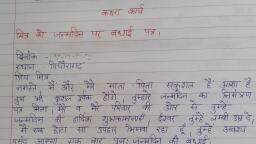 कक्षा कार्य
मित्र को जन्मदिन पर बधाई पत्र।
दिनांक
स्थान पिथौरागढ़
प्रिय मित्र
नमस्ते मैं और मेरे माता पिता सकुशल है आशा है
तुम भी कुशल होंगे, तुम्हारे जन्मदिन का निमंत्रण
पत्र मिला, मेरे व मेरे परिवार की ओर से तुम्हें
जन्मदिन की हार्दिक शुभकामनायें ईश्वर तुम्हें लम्बी उम्र दे,
मैं एक छोटा सा उपहार भिजवा रहा हूँ तुम्हें अवश्य
पसंद आएगा एक बार पुनः जन्मदिन की बधाई।